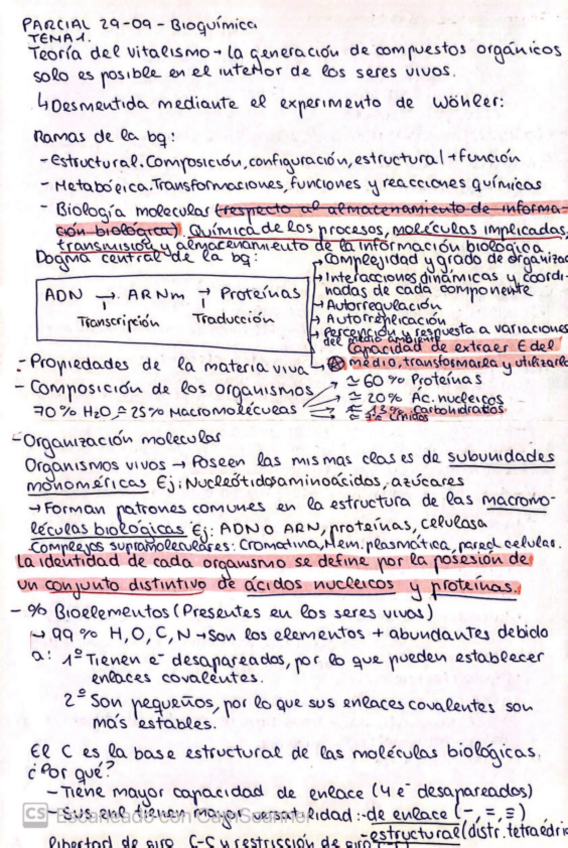 PARCIAL 29-09 - Bioquímica
TEMA 1.
Teoría del vitalismo → la generación de compuestos orgánicos
solo es posible en el interior de los seres vivos.
↳ Desmentida mediante el experimento de Wöhler:
Ramas de la bq:
- Estructural. Composición, configuración, estructural + función
- Metabólica. Transformaciones, funciones y reacciones químicas
- Biología molecular (respecto al almacenamiento de informa-
ción biológica). Química de los procesos, moléculas implicadas,
transmisión y almacenamiento de la información biológica
Dogma central de la bq:
ADN → ARNm → Proteínas
Transcripción Traducción
- Propiedades de la materia viva
→ Complejidad y grado de organizac
→ Interacciones dinámicas y coordi-
nadas de cada componente
→ Autorregulación
→ Autorreplicación
→ Percepción y respuesta a variaciones
del medio ambiente
Capacidad de extraer E del
medio, transformarla y utilizarla
- Composición de los organismos
70% H2O ≃ 25% Macromoléculas
→ ≃ 60% Proteínas
→ ≃ 20% Ac. nucleicos
→ ≃ 13% Carbohidratos
→ ≃ 7% Lípidos
- Organización molecular
Organismos vivos → Poseen las mismas clases de subunidades
monoméricas Ej: Nucleótidos aminoácidos, azúcares
→ Forman patrones comunes en la estructura de las macromo-
léculas biológicas Ej: ADN o ARN, proteínas, celulosa
Complejos supramoleculares: Cromatina, Mem. plasmática, pared celular.
La identidad de cada organismo se define por la posesión de
un conjunto distintivo de ácidos nucleicos y proteínas.
- % Bioelementos (Presentes en los seres vivos)
↳ 99% H, O, C, N → Son los elementos + abundantes debido
a: 1º Tienen e⁻ desapareados, por lo que pueden establecer
enlaces covalentes.
2º Son pequeños, por lo que sus enlaces covalentes son
más estables.
El C es la base estructural de las moléculas biológicas.
¿Por qué?
- Tiene mayor capacidad de enlace (4 e⁻ desapareados)
- Sus enl tienen mayor versatilidad: - de enlace (-, =, ≡)
- estructural (distr. tetraédric
libertad de giro C-C y restricción de giro
CS Escaneado con CamScanner